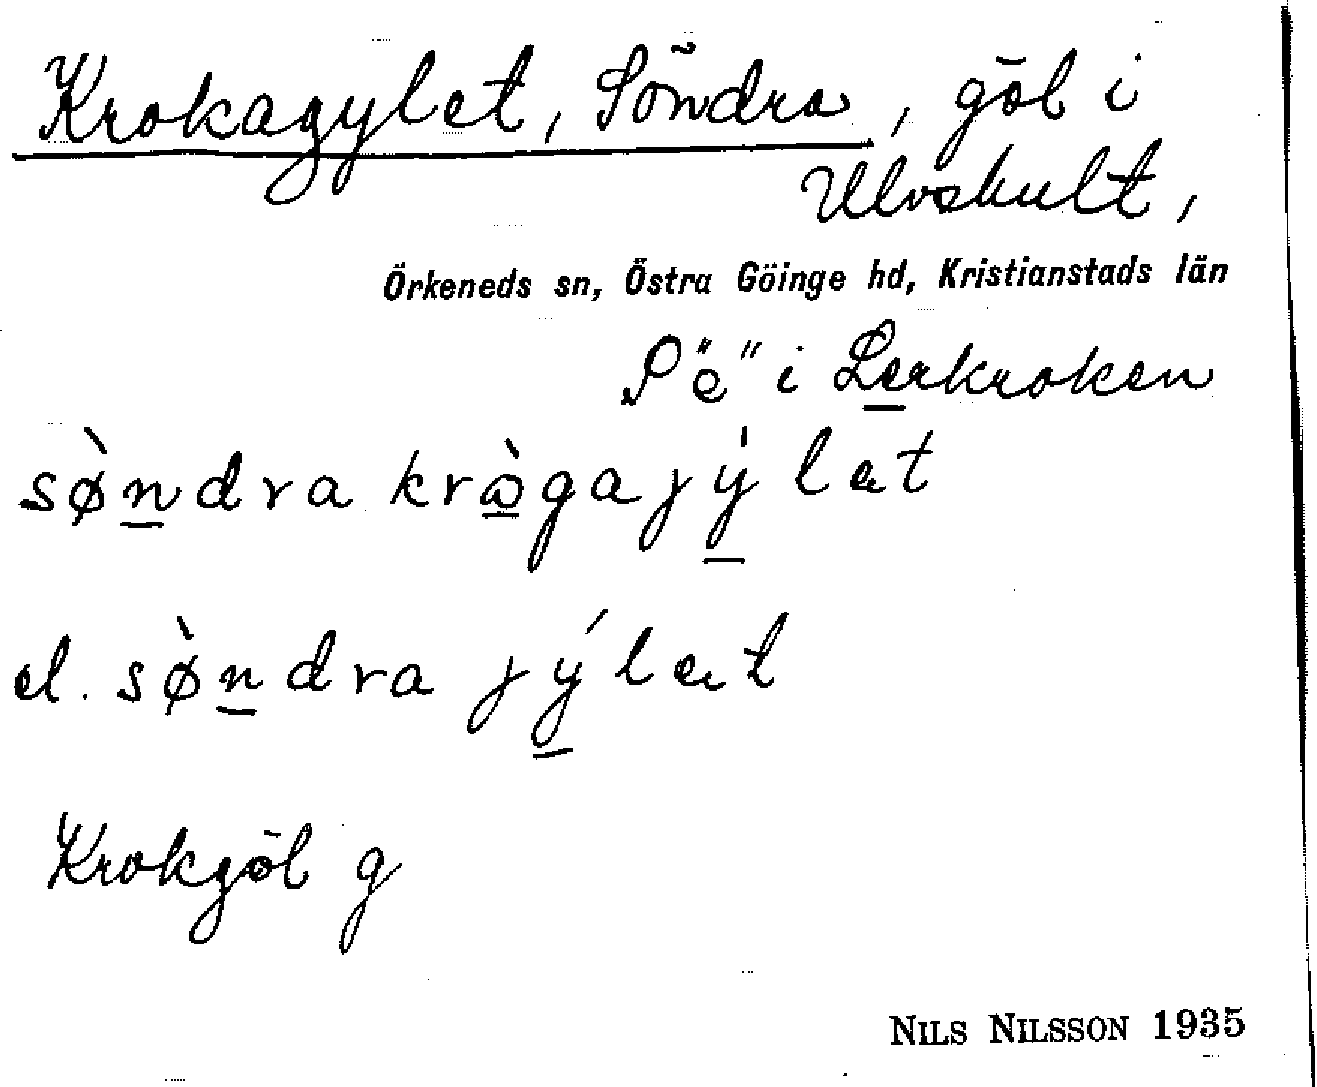 Krokagylet, Söndra, göl i
Ulvshult,
Örkeneds sn, Östra Göinge hd, Kristianstads län
"e" i Lerkroken
sø̀n̲dra krɷ̲̀gajý̲lət
el. sø̀n̲dra jý̲lət
Krokgöl g
NILS NILSSON 1935